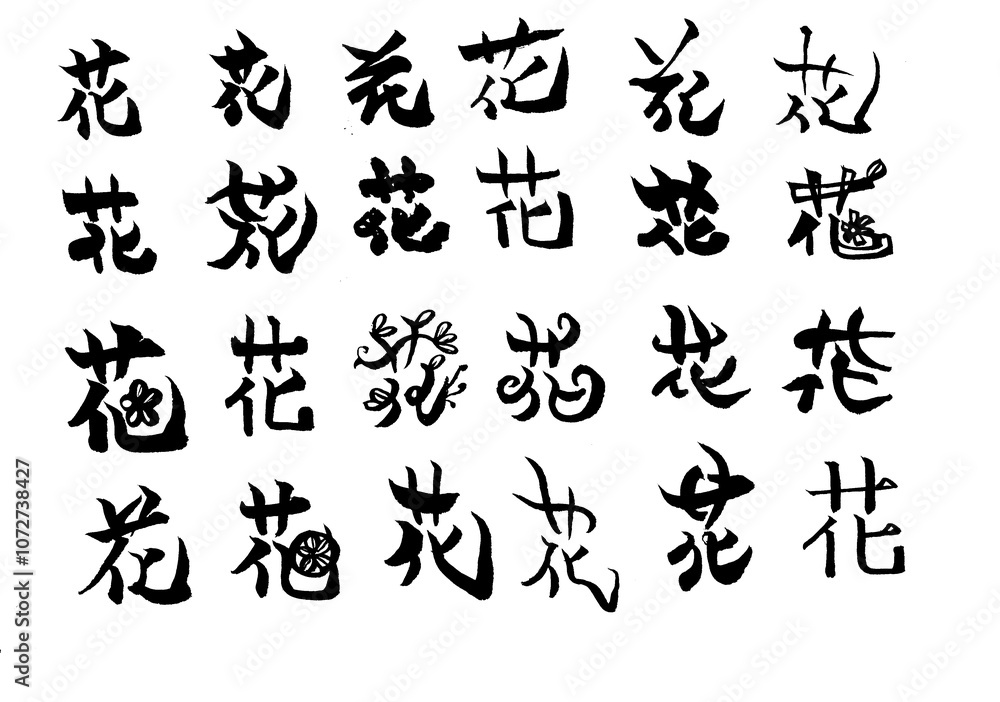 花 花 花 花 花 花
花 花 花 花 花 花
花 花 花 花 花 花
花 花 花 花 花 花
Adobe Stock | #1072738427